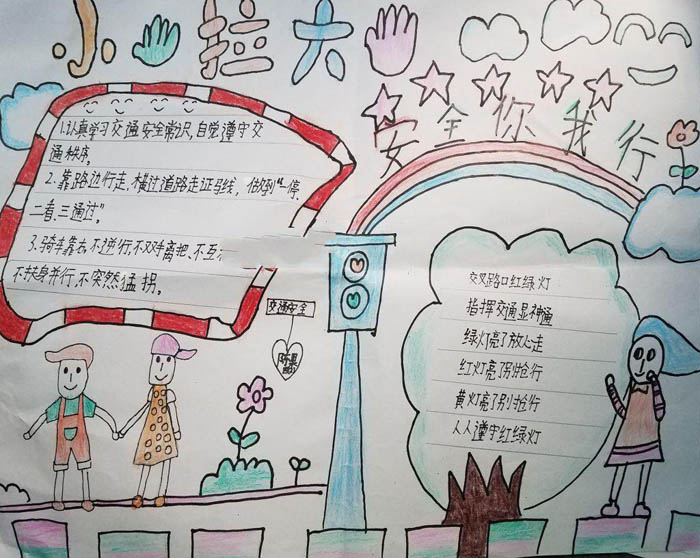 小拉大
安全你我行
1.认真学习交通安全常识,自觉遵守交
通秩序。
2、靠路边行走,横过道路走斑马线,做到“一停、
二看、三通过”。
3、骑车靠右,不逆行,不双手离把、不互
不转身并行,不突然猛拐。
交通安全
交叉路口红绿灯
指挥交通显神通
绿灯亮了放心走
红灯亮了别抢行
黄灯亮了别抢行
人人遵守红绿灯